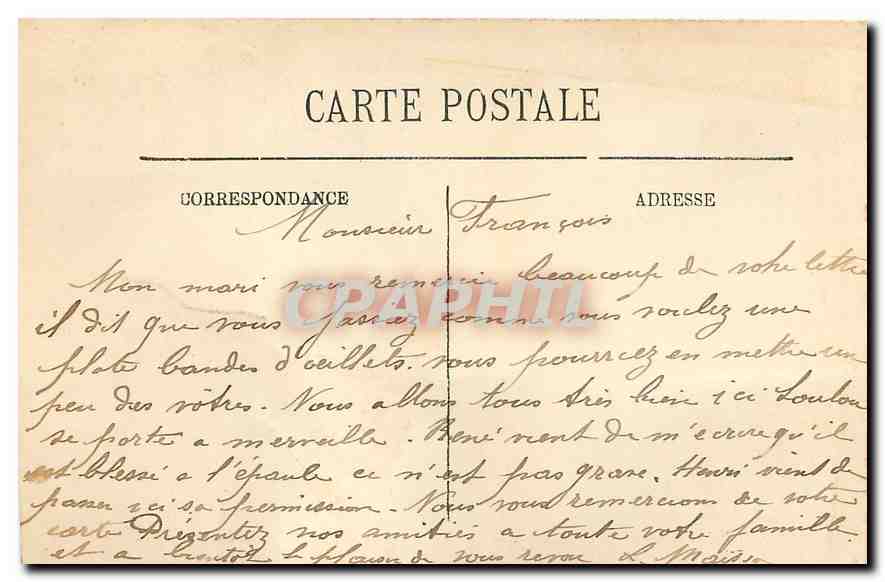 CARTE POSTALE
CORRESPONDANCE
ADRESSE
Monsieur François
Mon mari vous remercie beaucoup de votre lettre
il dit que vous fassiez comme vous voulez une
plate bandes d'oeillets. vous pourriez en mettre un
peu des vôtres. Nous allons tous très bien ici Loulou
se porte a merveille. René vient de m'ecrire qu'il
est blessé a l'épaule ce n'est pas grave. Henri vient de
passer ici sa permission. Nous vous remercions de votre
carte Présentez nos amitiés a toute votre famille
et a bientot le plaisir de vous revoir L.
CPAPHIL